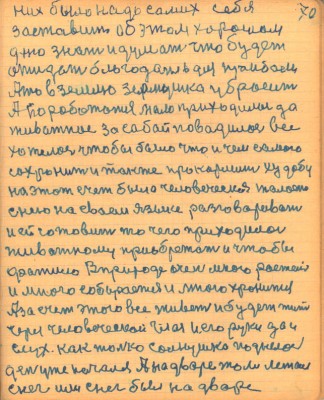 70
них было надо самих себя
заставить об этом хорошом
дню знат и думат что будет
ожидат благодать для прибоем
Ято в землю зернушка убросит
А поработотоя мало приходилос да
животное за сабой повадилос все
хотелося чтобы было что и чем самого
сохронит и также прокармит худобу
на этот счет было человеческоя жалост
с нею на своем языке разговариват
и ей готовит то чего приходилос
животному приобретат и чтобы
В природе очен много растет
и много собирается и много хронится
А за счет этого все живет и будет жит
через человеческой глаз и его руки да и
слух. как только солнушка поднелос
ден уже начался А на дворе жоли летает
снег или снег был на дворе